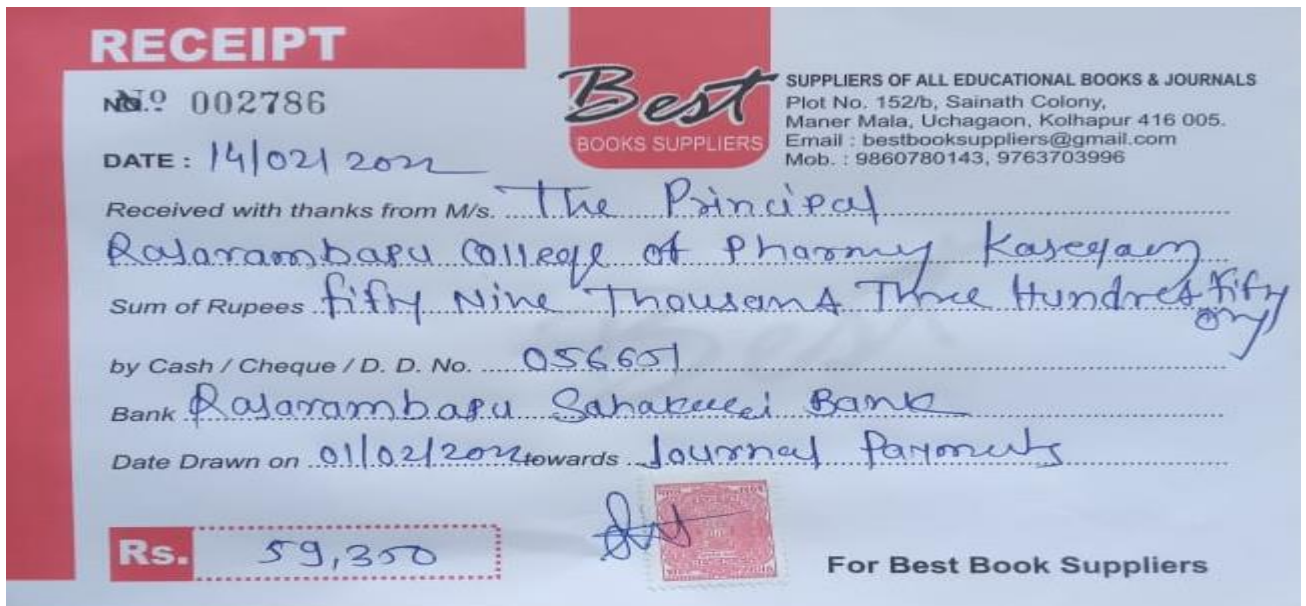 RECEIPT
No. Nº 002786
DATE : 14/02/2022
Best
BOOKS SUPPLIERS
SUPPLIERS OF ALL EDUCATIONAL BOOKS & JOURNALS
Plot No. 152/b, Sainath Colony,
Maner Mala, Uchagaon, Kolhapur 416 005.
Email : bestbooksuppliers@gmail.com
Mob. : 9860780143, 9763703996
Received with thanks from M/s. The Principal
Rajarambapu College of Pharmy Kasegaon
Sum of Rupees fifty Nine Thousand Three Hundred fifty
only
by Cash / Cheque / D. D. No. 056651
Bank Rajarambapu Sahakari Bank
Date Drawn on 01/02/2022 towards Journal Payments
Rs. 59,350
For Best Book Suppliers